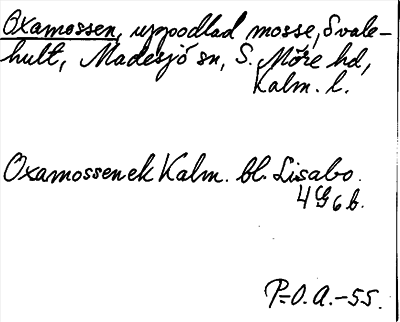 Oxamossen, uppodlad mosse, Svale-
hult, Madesjö sn, S. Möre hd,
Kalm. l.
Oxamossen ek Kalm. bl. Lisabo.
4G6b.
P-O.A.-55.